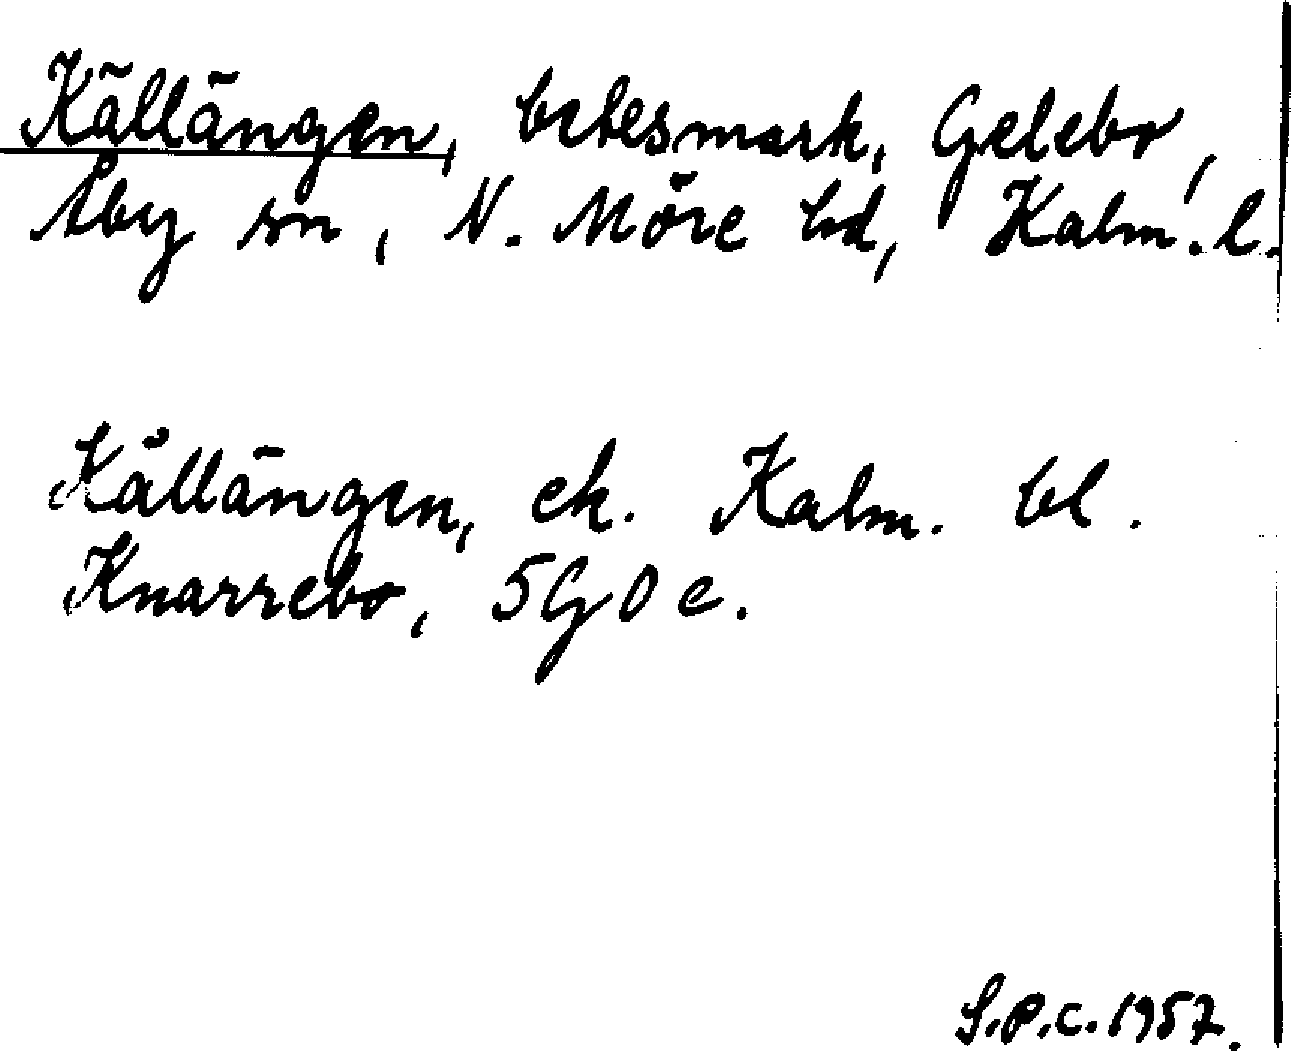 Källängen, betesmark, Gelebo,
Åby sn, N. Möre hd, Kalm. l.
Källängen, ek. Kalm. bl.
Knarrebo, 5G0e.
S.P.C. 1957.